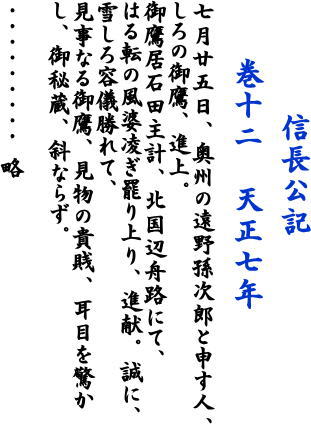 信長公記
巻十二　天正七年
七月廿五日、奥州の遠野孫次郎と申す人、
しろの御鷹、進上。
御鷹居石田主計、北国辺舟路にて、
はる転の風婆凌ぎ罷り上り、進献。誠に、
雪しろ容儀勝れて、
見事なる御鷹、見物の貴賤、耳目を驚か
し、御秘蔵、斜ならず。
・・・・・・・・略